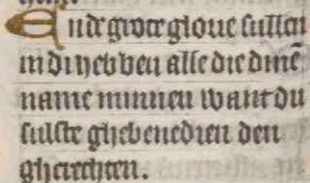 Ende groete gloue sullen
in di hebben alle die dinē
name minnen want du
sulste ghebenedien den
gherechten.